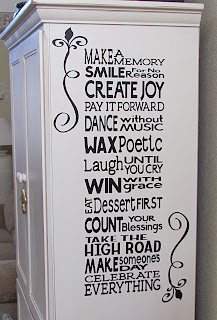 MAKE A MEMORY
SMILE For No Reason
CREATE JOY
PAY IT FORWARD
DANCE without MUSIC
WAX Poetic
Laugh UNTIL YOU CRY
WIN WITH grace
EAT Dessert FIRST
COUNT YOUR Blessings
TAKE THE
HIGH ROAD
MAKE someones DAY
CELEBRATE
EVERYTHING